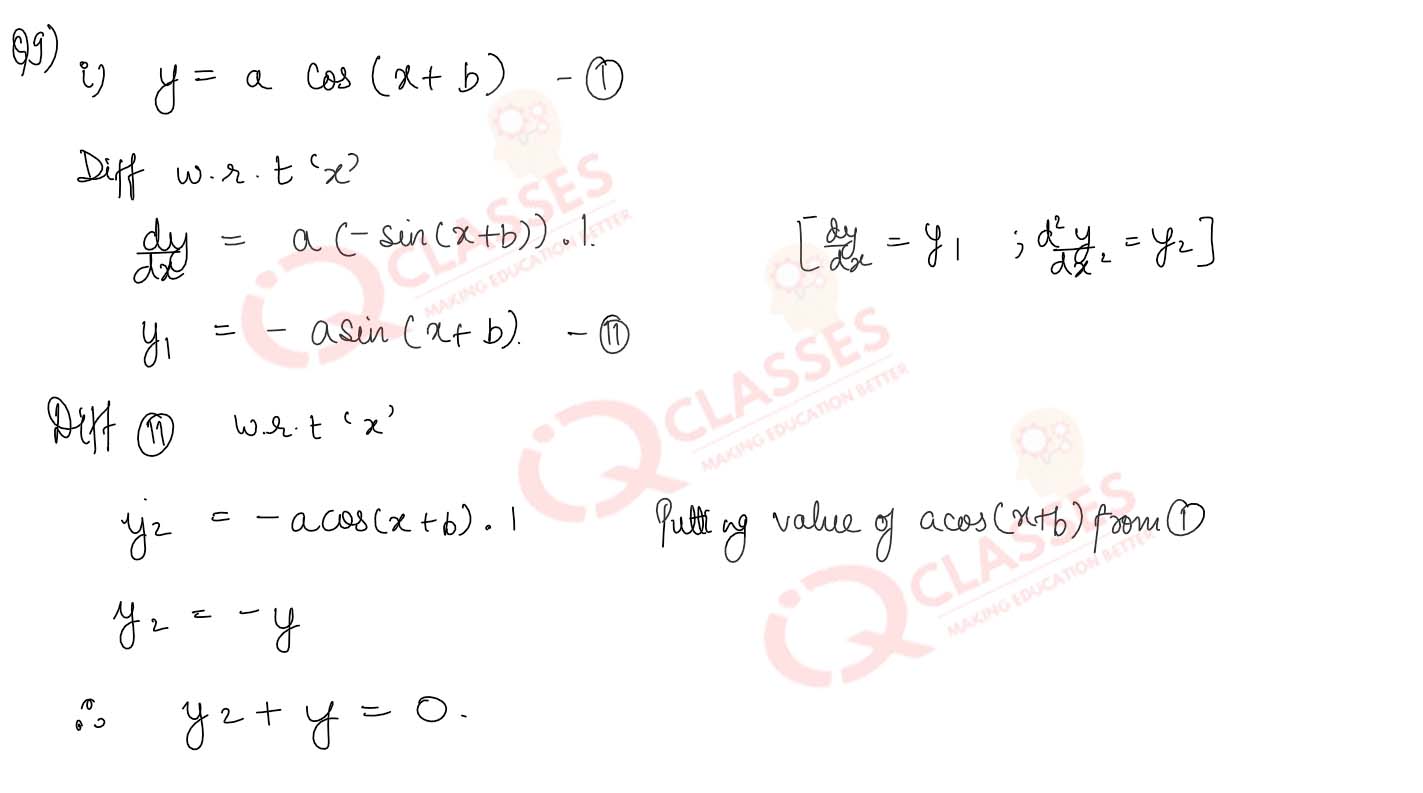 Q9) i) y = a cos (x + b) - ①
Diff w.r.t 'x'
dy/dx = a (- sin(x+b)) . 1. [dy/dx = y₁ ; d²y/dx² = y₂]
y₁ = - a sin (x + b). - ⑪
Diff ⑪ w.r.t 'x'
y₂ = - a cos(x + b) . 1 Putting value of a cos(x+b) from ①
y₂ = - y
∴ y₂ + y = 0.
iQ CLASSES
MAKING EDUCATION BETTER
iQ CLASSES
MAKING EDUCATION BETTER
iQ CLASSES
MAKING EDUCATION BETTER